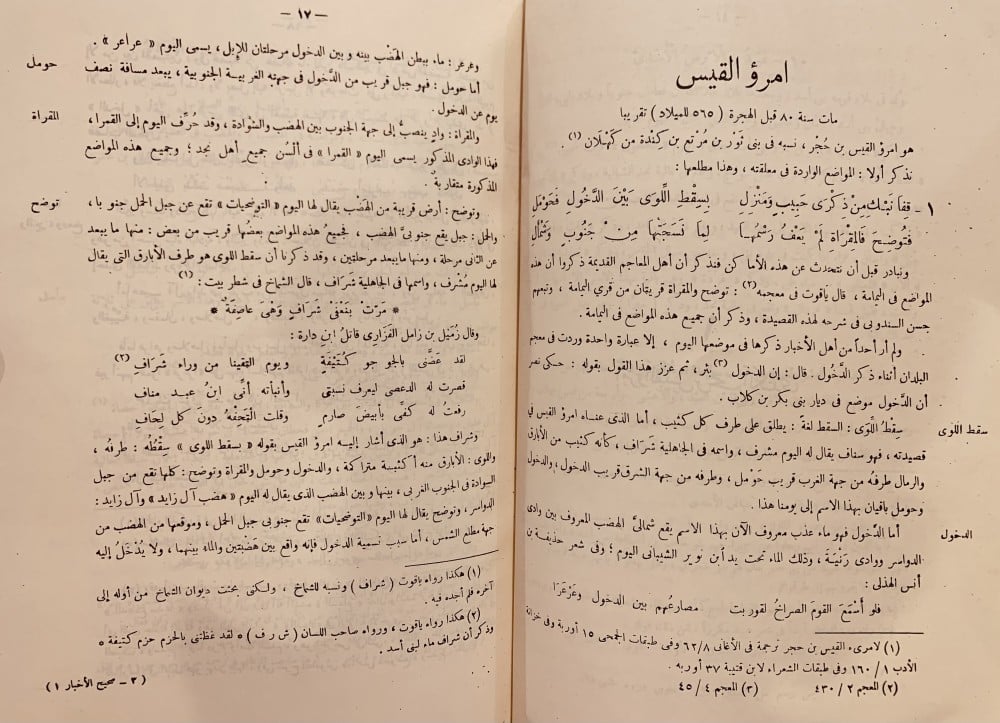 امرؤ القيس
مات سنة ٨٠ قبل الهجرة ( ٥٦٥ للميلاد ) تقريبا
هو امرؤ القيس بن حُجْر ، نسبه فى بنى ثَوْر بن مُرْتع بن كِنْدة من كَهْلان (١) .
نذكر أولا : المواضع الواردة فى معلقته ، وهذا مطلعها :
١ - قِفا نَبْكِ مِنْ ذِكْرَى حَبِيبٍ وَمَنْزِلِ بِسِقْطِ اللِّوَى بَيْنَ الدَّخُولِ فَحَوْمَلِ
فَتُوضِحَ فَالمِقْرَاةِ لَمْ يَعْفُ رَسْمُهَا لِمَا نَسَجَتْهَا مِنْ جَنُوبٍ وَشَمْأَلِ
ونبادر قبل أن نتحدث عن هذه الأماكن فنذكر أن أهل المعاجم القديمة ذكروا أن هذه
المواضع فى اليمامة ، قال ياقوت فى معجمه (٢) : توضح والمقراة قريتان من قرى اليمامة ، وتبعهم
حسن السندوبى فى شرحه لهذه القصيدة ، وذكر أن جميع هذه المواضع فى اليمامة .
ولم أر أحداً من أهل الأخبار ذكرها فى موضعها اليوم ، إلا عبارة واحدة وردت فى معجم
البلدان أثناء ذكر الدَّخُول . قال : إن الدخول (٣) بئر ، ثم عزز هذا القول بقوله : حكى نصر
أن الدَّخول موضع فى ديار بنى بكر بن كلاب .
سقط اللوى
سِقطُ اللِّوَى : السقط لغةً : يطلق على طرف كل كثيب ، أما الذى عناه امرؤ القيس فى
قصيدته ، فهو سناف يقال له اليوم مشرف ، واسمه فى الجاهلية شَرَاف ، كأنه كثيب من الأبارق
والرمال طرفه من جهة الغرب قريب حَوْمل ، وطرفه من جهة الشرق قريب الدخول ، والدخول
وحومل باقيان بهذا الاسم إلى يومنا هذا .
الدخول
أما الدَّخول فهو ماء عذب معروف الآن بهذا الاسم يقع شمالىَّ الهضب المعروف بين وادى
الدواسر ووادى رَنْيَةَ ، وذلك الماء تحت يد ابن نوير الشيبانى اليوم ؛ وفى شعر حذيفة بن
أنس الهذلى :
فلو أسْمَعَ القومَ الصراخُ لقوربت مصارعُهم بين الدخول وعَرْعَرَا
(١) لامرىء القيس بن حجر ترجمة فى الأغانى ٦٢/٨ وفى طبقات الجمحى ١٥ أوربة وفى خزانة
الأدب ١ / ١٦٠ وفى طبقات الشعراء لابن قتيبة ٣٧ أوربه .
(٢) المعجم ٢ / ٤٣٠ (٣) المعجم ٤ / ٤٥
— ١٧ —
وعرعر : ماء ببطن الهَضْب بينه وبين الدخول مرحلتان للإبل ، يسمى اليوم « عراعر » .
حومل
أما حومل : فهو جبل قريب من الدَّخول فى جهته الغربية الجنوبية ، يبعد مسافة نصف
يوم عن الدخول .
المقراة
والمقراة : وادٍ ينصبُّ إلى جهة الجنوب بين الهضب والسَّوادة ، وقد حُرِّف اليوم إلى القمرا ،
فهذا الوادى المذكور يسمى اليوم « القمرا » فى ألسُن جميع أهل نجد ؛ وجميع هذه المواضع
المذكورة متقاربةٌ .
توضح
وتوضح : أرض قريبة من الهَضْب يقال لها اليوم « التوضحيات » تقع عن جبل الحمل جنوبا ،
والحمل : جبل يقع جنوبىَّ الهضب ، فجميعُ هذه المواضع بعضُها قريب من بعض : منها ما يبعد
عن الثانى مرحلة ، ومنها ما يبعد مرحلتين ، وقد ذكرنا أن سقط اللوى هو طرف الأبارق التى يقال
لها اليوم مُشْرف ، واسمها فى الجاهلية شَرَاف ، قال الشماخ فى شطر بيت : (١)
* مَرَّتْ بنَعْفَىْ شَرَافٍ وَهْىَ عاصِفَةٌ *
وقال زُمَيل بن زامل الفَزَارى قاتلُ ابنِ دارة :
لقد عَضَّى بالجو جو كُتَيْفَةٍ ويوم التقينا من وراء شَرَافِ (٢)
قصرت له الدعصى ليعرف نسبتى وأنبأته أنِّى ابنُ عبد مناف
رفعتُ له كفِّى بأبيضَ صارمٍ وقلت التَحِفْهُ دونَ كل لِحَاف
وشراف هذا : هو الذى أشار إليه امرؤ القيس بقوله « بسقط اللوى » سِقْطُه : طرفه ،
واللوى : الأبارق منه أكثيبة متراكمة ، والدخول وحومل والمقراة وتوضح : كلها تقع من جبل
السوادة فى الجنوب الغربى ، بينها وبين الهضب الذى يقال له اليوم « هضب آل زايد » وآل زايد :
الدواسر ، وتوضح يقال لها اليوم « التوضحيات » تقع جنوبى جبل الحمل ، وموقعها من الهضب من
جهة مطلع الشمس ، أما سبب تسمية الدخول فإنه واقع بين هَضْبتين والماء بينهما ، ولا يُدْخَلُ إليه
(١) هكذا رواه ياقوت ( شراف ) ونسبه للشماخ ، ولكنى بحثت ديوان الشماخ من أوله إلى
آخره فلم أجده فيه .
(٢) هكذا رواه ياقوت ، ورواه صاحب اللسان ( ش ر ف ) « لقد غظتنى بالحزم حزم كتيفة »
وذكر أن شراف ماء لبنى أسد .
( ٢ - صحيح الأخبار ١ )